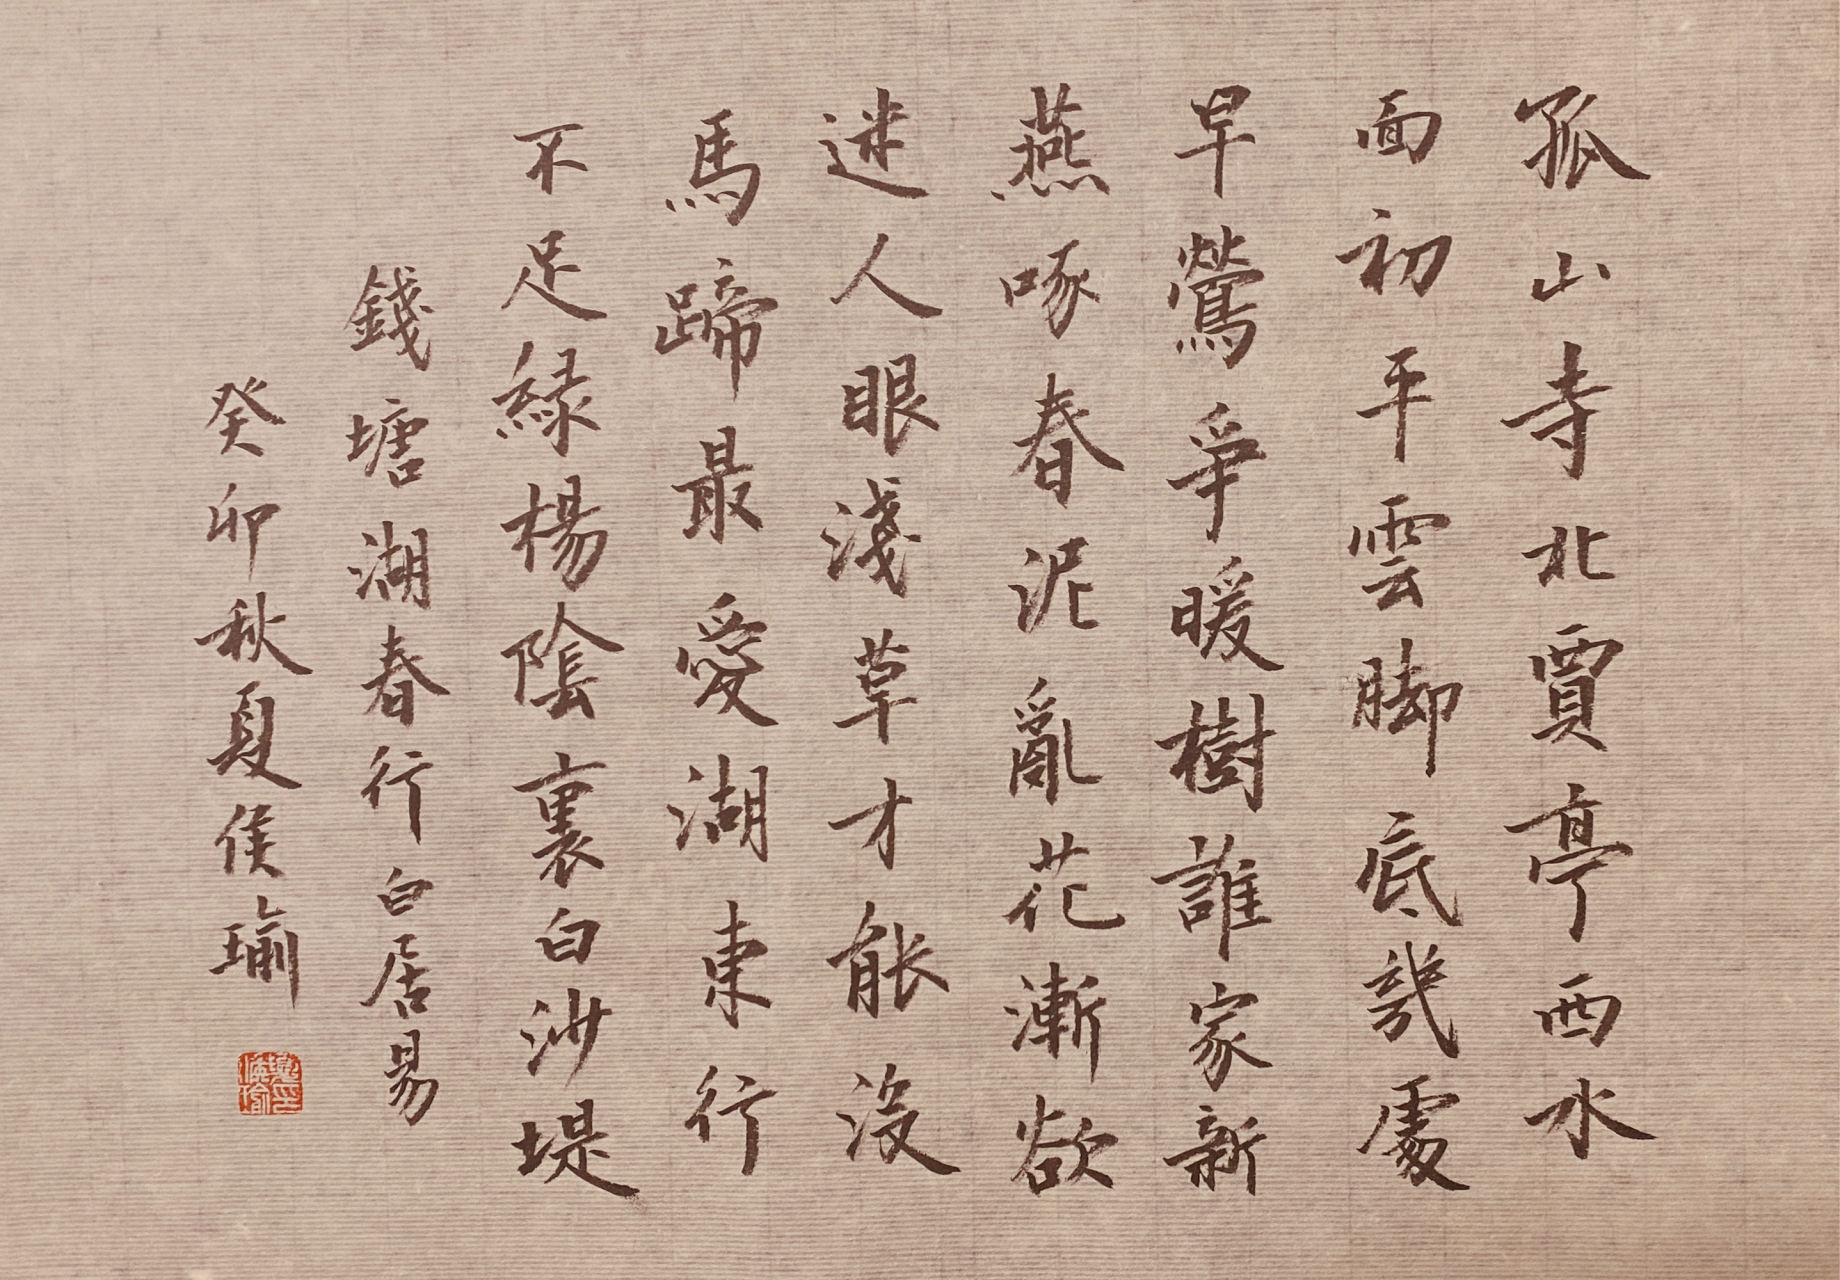 孤山寺北賈亭西水
面初平雲脚底幾處
早鶯爭暖樹誰家新
燕啄春泥亂花漸欲
迷人眼淺草才能没
馬蹄最愛湖東行
不足緑楊陰裏白沙堤
錢塘湖春行白居易
癸卯秋夏侯瑜